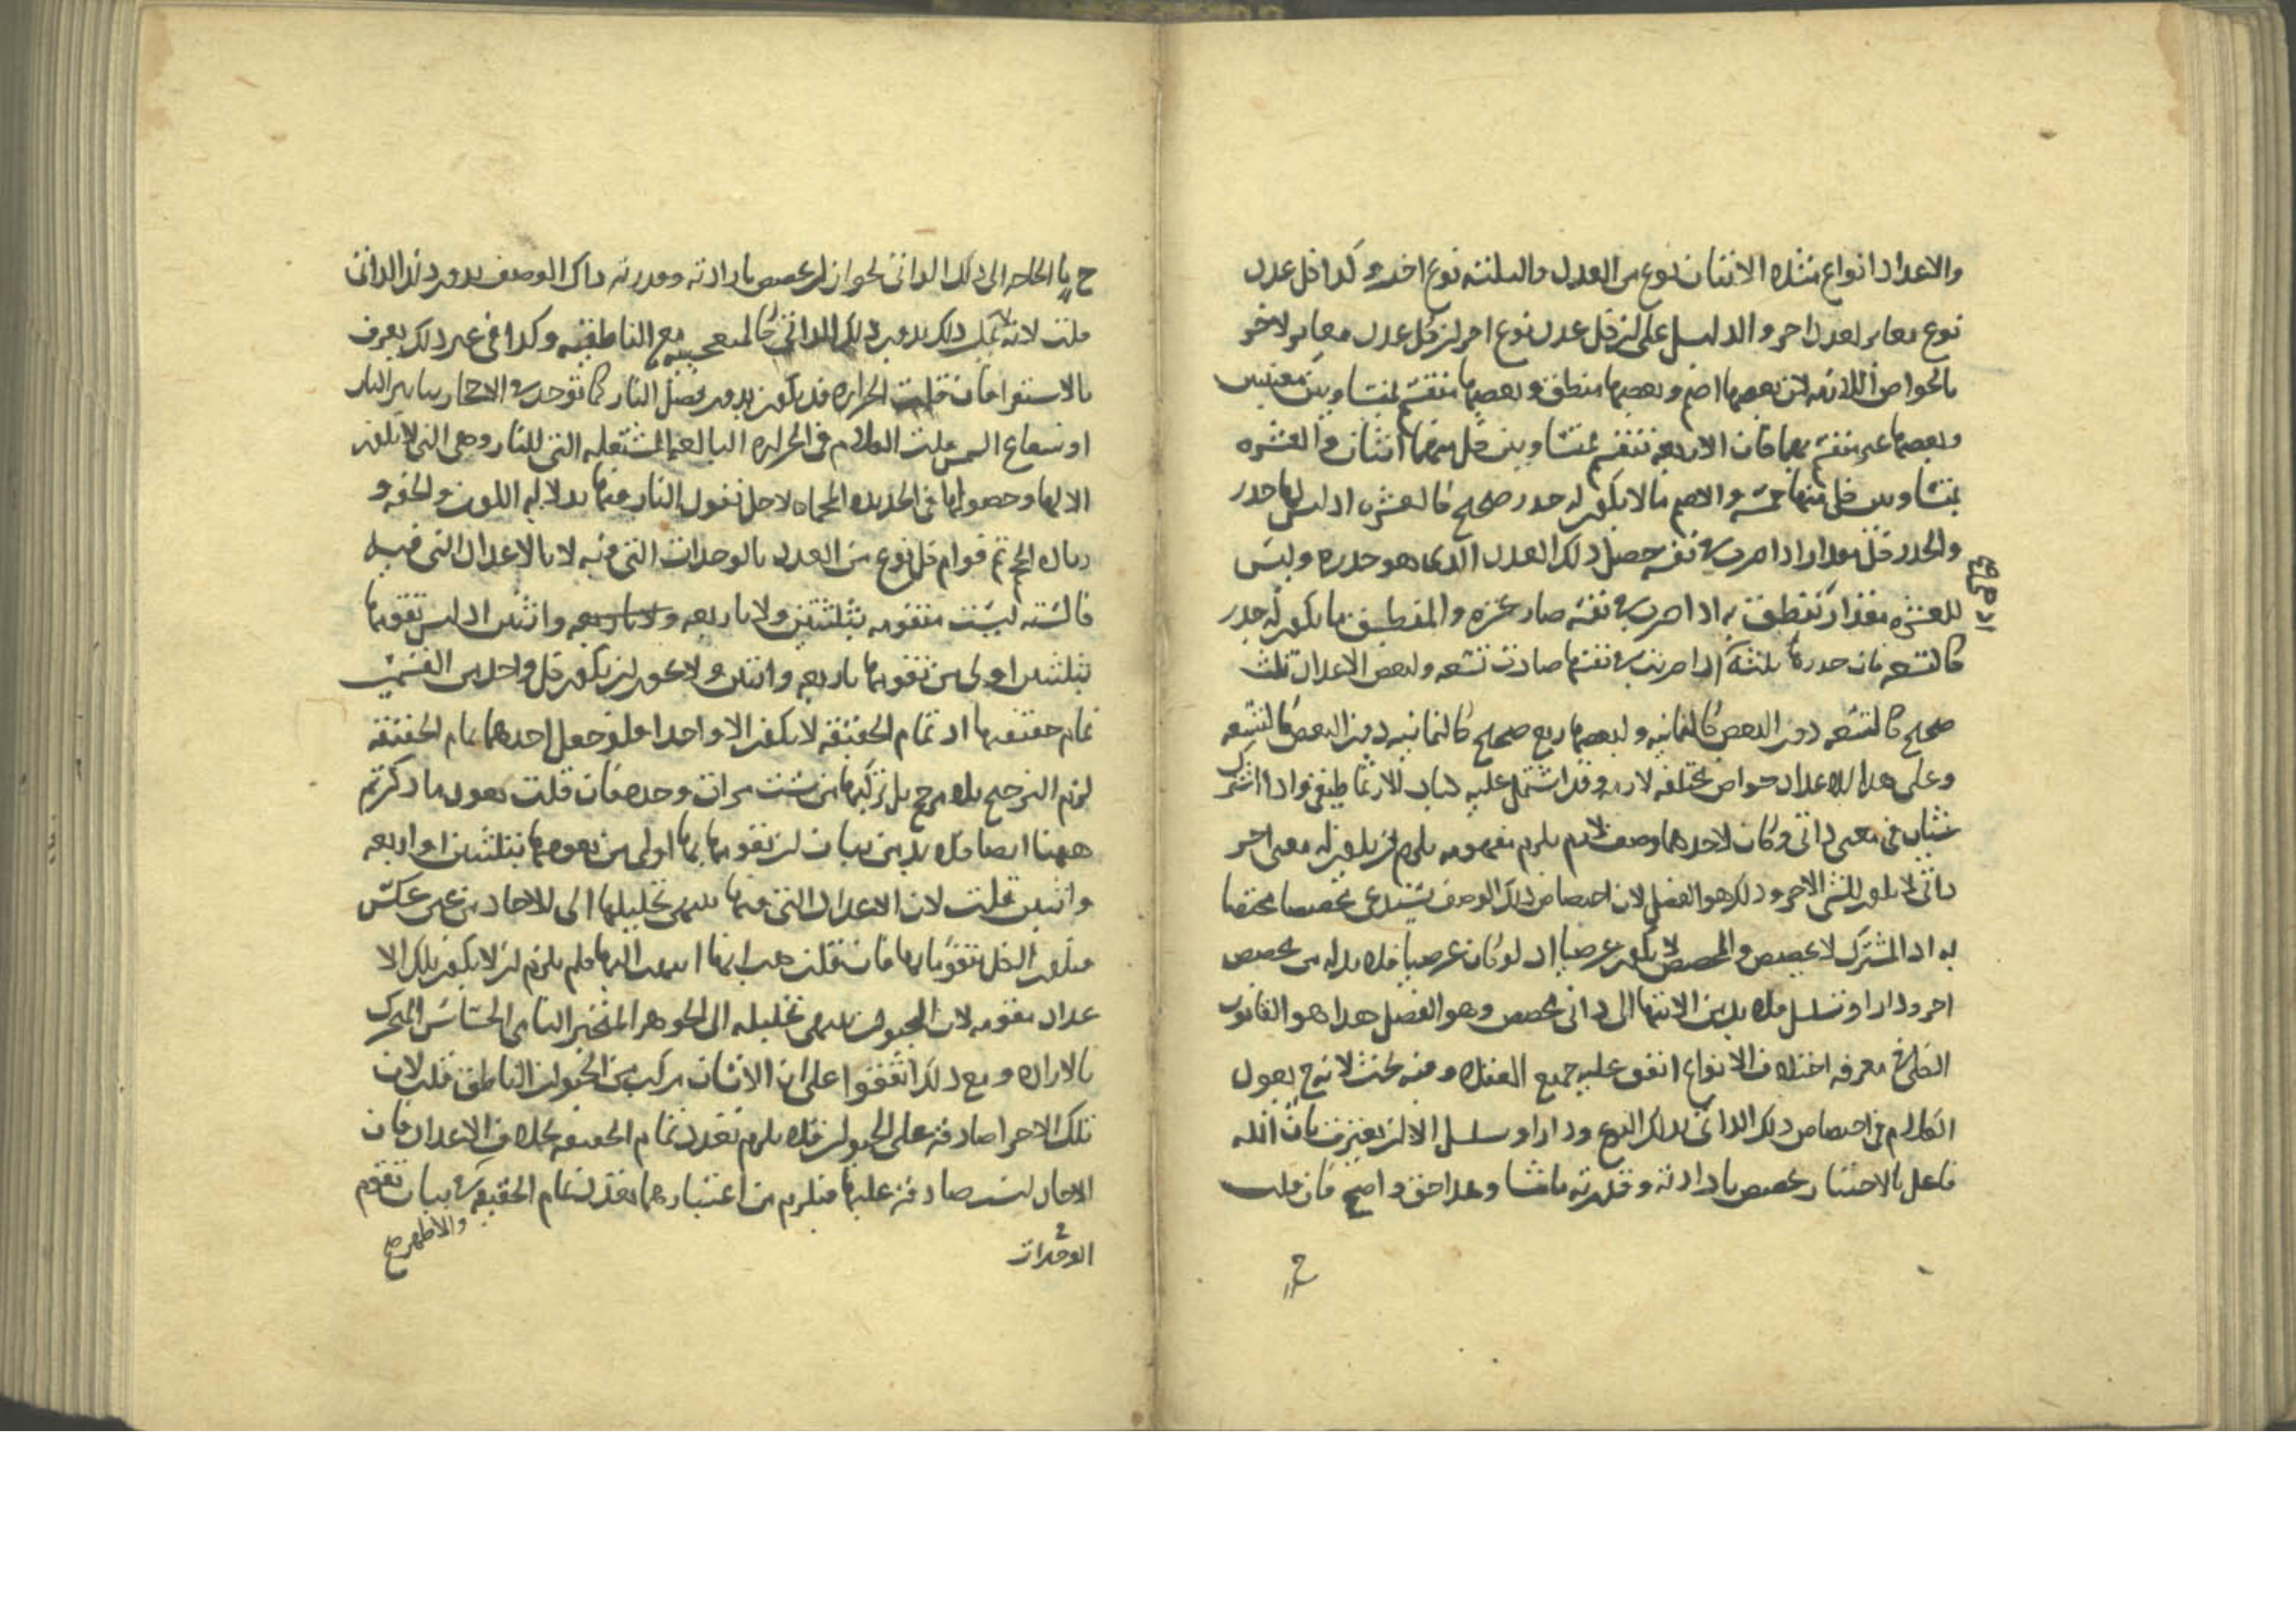 والاعداد انواع مثلا الاثنان نوع من العدد والثلثه نوع اخر و كذا كل عدد
نوع مغاير لعدد اخر والدليل على ان كل عدد نوع اخر ان كل عدد مغاير لاخر
بالخواص اللازمه لان بعضها اصم وبعضها منطق وبعضها منقسم بمتساويين
وبعضها غير منقسم بهما فان الاربعه تنقسم بمتساويين كل منهما اثنان والعشره
بمتساويين كل منهما خمسه والاصم ما لا يكون له جدر صحيح كالعشره اذ ليس لها جدر
والجدر كل مقدار اذا ضرب في نفسه حصل ذلك العدد الذي هو جدره وليس
للعشره مقدار تنطق به اذا ضرب في نفسه صار عشره والمنطق ما يكون له جدر
كالتسعه فان جدرها ثلثه اذا ضربت في نفسها صارت تسعه ولبعض الاعداد ثلث
صحيح كالتسعه دون البعض كالثمانيه ولبعضها ربع صحيح كالثمانيه دون البعض كالتسعه
وعلى هذا للاعداد خواص مختلفه لازمه وقد اشتمل عليه كتاب الارثماطيقي واذا اشترك
شيئان في معنى ذاتي وكان لاحدهما وصف لازم يلزم مفهومه يلزم ان يكون له معنى اخر
ذاتي لا يكون للشي الاخر وذلك هو الفصل لان اختصاص ذلك الوصف يستدعي مخصصا مختصا
به اذ المشترك لا يخصص والمخصص لا يكون عرضيا اذ لو كان عرضيا فلا بد له من مخصص
اخر ودار او تسلسل فلا بد من الانتها الى ذاتي مخصص وهو الفصل هذا هو القانون
الكلي في معرفه اختلاف الانواع اتفق عليه جميع العقلا وفيه بحث لانه ح يعود
الكلام في اختصاص ذلك الذاتي بذلك النوع ودار او تسلسل الا ان يعترف بان الله
فاعل بالاختيار يخصص بارادته وقدرته ما شا وهذا حق واضح فان قلت
ح
ح لا حاجه الى ذلك الذاتي لجواز ان يخصص بارادته وقدرته ذاك الوصف بدون ذلك الذاتي
قلت لانه لا يمكن ذلك بدون ذلك الذاتي كالمتعجبيه مع الناطقيه وكذا في غير ذلك يعرف
بالاستقرا فان قلت الحراره قد يكون بدون فصل النار كما توجد في الاحجار بتاثير النار
او شعاع الشمس قلت الكلام في الحراره البالغه المشتعله التي للنار وهي التي لا يكون
الا لها وحصولها في الحديده المحماه لاجل نفوذ النار فيها بدلاله اللون والخفه و
قوام كل نوع من العدد بالوحدات التي فيه لا بالاعداد التي فيه
فالسته ليست متقومه بثلثتين ولا باربعه واثنين اذ ليس تقومها
بثلثتين اولى من تقومها باربعه واثنين ولا يجوز ان يكون كل واحد من القسمين
تمام حقيقتها اذ تمام الحقيقه لا يكون الا واحدا فلو جعل احدهما تمام الحقيقه
لزم الترجيح بلا مرجح بل تركبها من ست مرات وحده فان قلت يعود ما ذكرتم
ههنا ايضا فلا بد من بيان ان تقومها بها اولى من تقومها بثلثتين او اربعه
واثنين قلت لان الاعداد التي فيها ينتهي تحليلها الى الاحاد من غير عكس
فيكون الكل متقوما بها فان قلت هب انها انتهت اليها فلم يلزم ان لا يكون تلك الا
عداد مقومه لان الحيوان ينتهي تحليله الى الجوهر المتحيز النامي الحساس المتحرك
بالاراده ومع ذلك اتفقوا على ان الانسان مركب من الحيوان الناطق قلت لان
تلك الاجزا صادقه على الحيوان فلا يلزم تعدد تمام الحقيقه بخلاف الاعداد فان
الاحاد ليست صادقه عليها فيلزم من اعتبارهما تعدد تمام الحقيقه في بيان تقوم
والاظهر صح
الوحدات